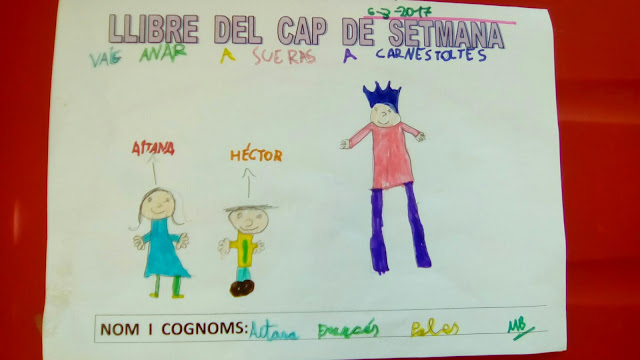 6-3-2017
LLIBRE DEL CAP DE SETMANA
VAIG ANAR A SUERAS A CARNESTOLTES
AITANA
HÉCTOR
NOM I COGNOMS: Aitana Francés Pales MB